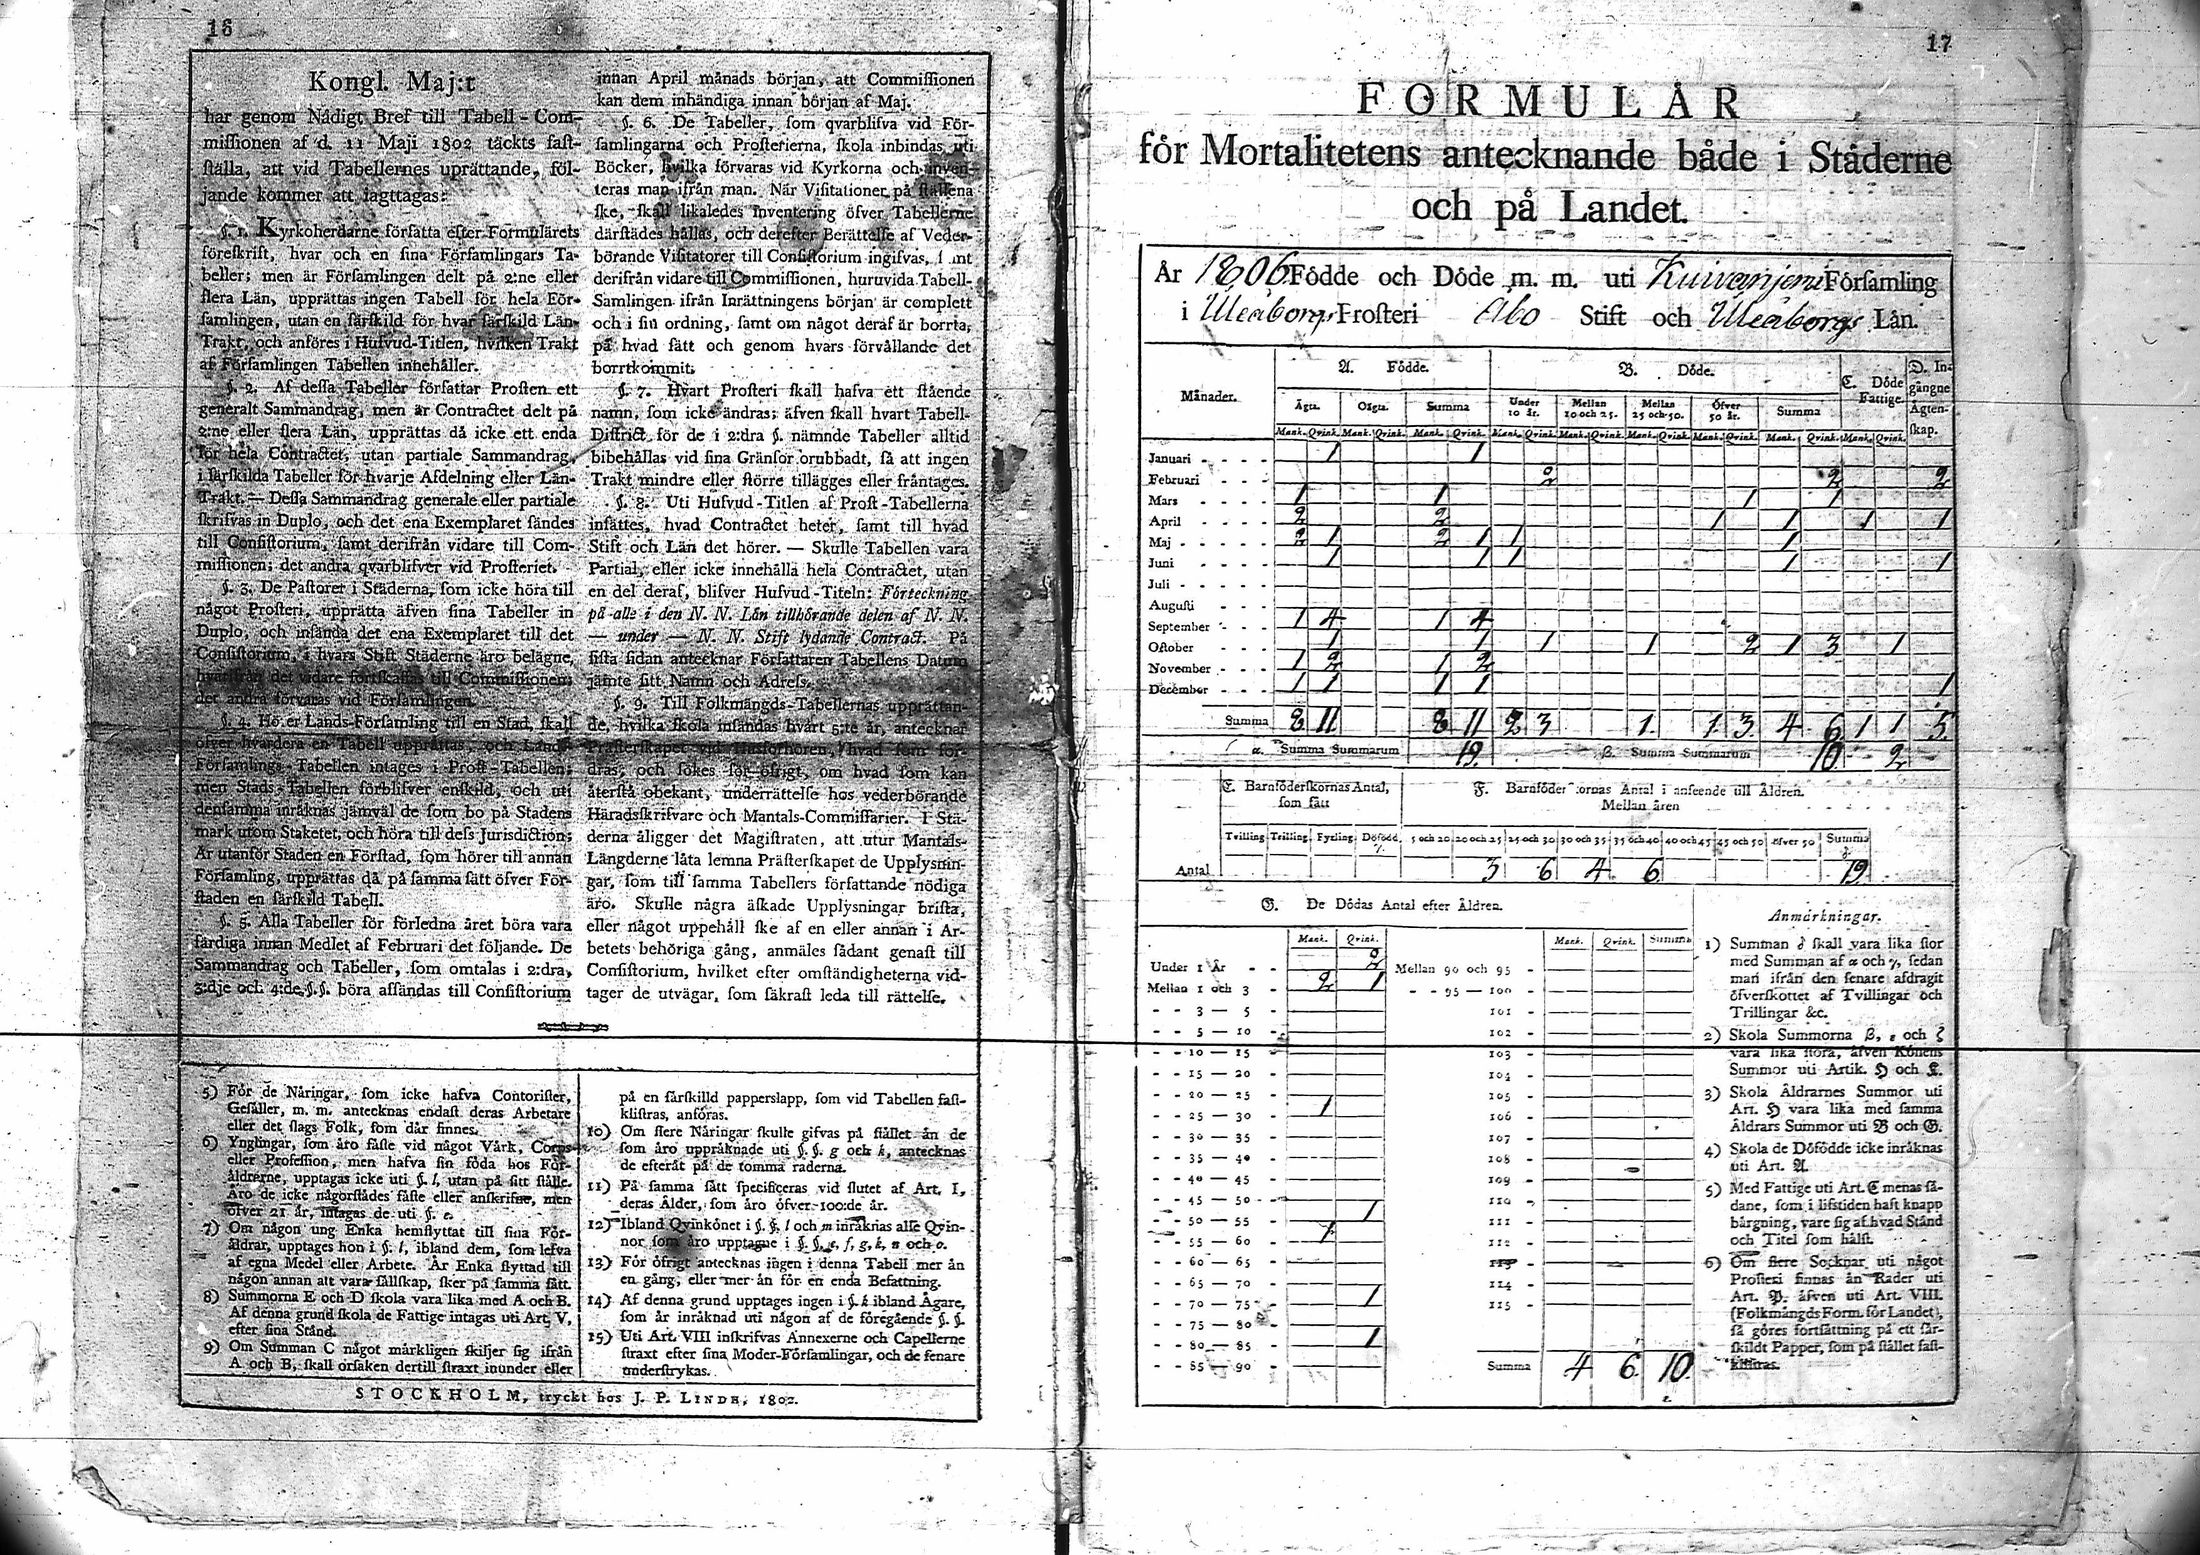 16
Kongl. Maj:t
har genom Nådigt Bref till Tabell-Com-
missionen af d. 11 Maji 1802 täckts fast-
ställa, att vid Tabellernes uprättande, föl-
jande kommer att iagttagas:
§. 1. Kyrkoherdarne författa efter Formulärets
föreskrift, hvar och en sina Församlingars Ta-
beller; men är Församlingen delt på 2:ne eller
flera Län, upprättas ingen Tabell för hela För-
samlingen, utan en särskild för hvar särskild Län-
Trakt, och anföres i Hufvud-Titlen, hvilken Trakt
af Församlingen Tabellen innehåller.
§. 2. Af dessa Tabeller författar Prosten ett
generalt Sammandrag, men är Contractet delt på
2:ne eller flera Län, upprättas då icke ett enda
för hela Contractet, utan partiale Sammandrag,
i särskilda Tabeller för hvarje Afdelning eller Län-
Trakt. — Dessa Sammandrag generale eller partiale
skrifvas in Duplo, och det ena Exemplaret sändes
till Consistorium, samt derifrån vidare till Com-
missionen; det andra qvarblifver vid Prosteriet.
§. 3. De Pastorer i Städerna, som icke höra till
något Prosteri, upprätta äfven sina Tabeller in
Duplo, och insända det ena Exemplaret till det
Consistorium, i hvars Stift Städerne äro belägne,
hvarifrån det vidare fortskaffas till Commissionen;
det andra förvaras vid Församlingen.
§. 4. Hörer Lands-Församling till en Stad, skall
öfver hvardera en Tabell upprättas, och Lands-
Församlings-Tabellen intages i Prost-Tabellen;
men Stads-Tabellen förblifver enskild, och uti
densamma inräknas jämväl de som bo på Stadens
mark utom Staketet, och höra till dess Jurisdiction;
Är utanför Staden en Förstad, som hörer till annan
Församling, upprättas då på samma sätt öfver För-
staden en särskild Tabell.
§. 5. Alla Tabeller för förledna året böra vara
färdiga innan Medlet af Februari det följande. De
Sammandrag och Tabeller, som omtalas i 2:dra,
3:dje och 4:de §.§. böra afsändas till Consistorium
innan April månads början, att Commissionen
kan dem inhändiga innan början af Maj.
§. 6. De Tabeller, som qvarblifva vid För-
samlingarna och Prosterierna, skola inbindas uti
Böcker, hvilka förvaras vid Kyrkorna och inven-
teras man ifrån man. När Visitationer på ställena
ske, skall likaledes Inventering öfver Tabellerne
därstädes hållas, och derefter Berättelse af Veder-
börande Visitatorer till Consistorium ingifvas, samt
derifrån vidare till Commissionen, huruvida Tabell-
Samlingen ifrån Inrättningens början är complett
och i sin ordning, samt om något deraf är borrta,
på hvad sätt och genom hvars förvållande det
borrtkommit.
§. 7. Hvart Prosteri skall hafva ett stående
namn, som icke ändras; äfven skall hvart Tabell-
District för de i 2:dra §. nämnde Tabeller alltid
bibehållas vid sina Gränsor orubbadt, så att ingen
Trakt mindre eller större tillägges eller fråntages.
§. 8. Uti Hufvud-Titlen af Prost-Tabellerna
insättes, hvad Contractet heter, samt till hvad
Stift och Län det hörer. — Skulle Tabellen vara
Partial, eller icke innehålla hela Contractet, utan
en del deraf, blifver Hufvud-Titeln: Förteckning
på alle i den N. N. Län tillhörande delen af N. N.
— under — N. N. Stift lydande Contract. På
sista sidan antecknar Författaren Tabellens Datum
jämte sitt Namn och Adress.
§. 9. Till Folkmängds-Tabellernas upprättan-
de, hvilka skola insändas hvart 5:te år, antecknar
Prästerskapet vid Husförhören, hvad som for-
dras, och sökes för öfrigt, om hvad som kan
återstå obekant, underrättelse hos vederbörande
Häradsskrifvare och Mantals-Commissarier. I Stä-
derna åligger det Magistraten, att utur Mantals-
Längderne låta lemna Prästerskapet de Upplysnin-
gar, som till samma Tabellers författande nödiga
äro. Skulle några äskade Upplysningar brista,
eller något uppehåll ske af en eller annan i Ar-
betets behöriga gång, anmäles sådant genast till
Consistorium, hvilket efter omständigheterna vid-
tager de utvägar, som säkrast leda till rättelse.
5) För de Näringar, som icke hafva Contorister,
Gesäller, m. m. antecknas endast deras Arbetare
eller det slags Folk, som där finnes.
6) Ynglingar, som äro fäste vid något Värk, Corps
eller Profession, men hafva sin föda hos För-
äldrarne, upptagas icke uti §. l, utan på sitt ställe.
Äro de icke någorstädes fäste eller anskrifne, men
öfver 21 år, intagas de uti §. e.
7) Om någon ung Enka hemflyttat till sina För-
äldrar, upptages hon i §. l, ibland dem, som lefva
af egna Medel eller Arbete. Är Enka flyttad till
någon annan att vara sällskap, sker på samma sätt.
8) Summorna E och D skola vara lika med A och B.
Af denna grund skola de Fattige intagas uti Art. V,
efter sina Stånd.
9) Om Summan C något märkligen skiljer sig ifrån
A och B, skall orsaken dertill straxt inunder eller
på en särskilld papperslapp, som vid Tabellen fast-
klistras, anföras.
10) Om flere Näringar skulle gifvas på stället än de
som äro uppräknade uti §. §. g och k, antecknas
de efteråt på de tomma raderna.
11) På samma sätt specificeras vid slutet af Art. I,
deras Ålder, som äro öfver 100:de år.
12) Ibland Qvinkönet i §. §. l och m inräknas alle Qvin-
nor som äro upptagne i §. §. e, f, g, k, n och o.
13) För öfrigt antecknas ingen i denna Tabell mer än
en gång, eller mer än för en enda Befattning.
14) Af denna grund upptages ingen i §. k ibland Ägare,
som är inräknad uti någon af de föregående §. §.
15) Uti Art. VIII inskrifvas Annexerne och Capellerne
straxt efter sina Moder-Församlingar, och de senare
understrykas.
STOCKHOLM, tryckt hos J. P. LINDH, 1802.
17
FORMULÄR
för Mortalitetens antecknande både i Städerne
och på Landet.
År 1806 Födde och Döde m. m. uti Kuivaniemi Församling
i Uleåborgs Prosteri Åbo Stift och Uleåborgs Län.
Månader. A. Födde. B. Döde. C. Döde Fattige. D. Ingångne Ägtenskap.
Ägta. Oägta. Summa Under 10 år. Mellan 10 och 25. Mellan 25 och 50. Öfver 50 år. Summa
Mank. Qvink. Mank. Qvink. Mank. Qvink. Mank. Qvink. Mank. Qvink. Mank. Qvink. Mank. Qvink. Mank. Qvink. Mank. Qvink.
Januari - - - - 1 1
Februari - - - - 2 2 2
Mars - - - - 1 1 1 1
April - - - - 2 2 1 1 1 1
Maj - - - - 2 1 2 1 1 1
Juni - - - - 1 1 1 1 1
Juli - - - -
Augusti - - - -
September - - - 1 4 1 4
October - - - - 1 1 1 1 2 1 3 1
November - - - 1 2 1 2
December - - - 1 1 1 1 1
Summa 8 11 8 11 2 3 1 1 3 4 6 1 1 5
α. Summa Summarum 19. β. Summa Summarum 10 2
E. Barnföderskornas Antal, som fått
F. Barnföderskornas Antal i anseende till Åldren.
Mellan åren
Tvilling Trilling Fyrling Dödfödd. γ. 15 och 20 20 och 25 25 och 30 30 och 35 35 och 40 40 och 45 45 och 50 öfver 50 Summa δ
Antal 3 6 4 6 19
G. De Dödas Antal efter Åldren.
Mank. Qvink. Mank. Qvink. Summa
Under 1 År - - 2 Mellan 90 och 95 -
Mellan 1 och 3 - 2 1 - - 95 — 100 -
- - 3 — 5 - 101 -
- - 5 — 10 - 102 -
- - 10 — 15 - 103 -
- - 15 — 20 - 104 -
- - 20 — 25 - 105 -
- - 25 — 30 - 1 106 -
- - 30 — 35 - 107 -
- - 35 — 40 - 108 -
- - 40 — 45 - 109 -
- - 45 — 50 - 110 -
- - 50 — 55 - 1 111 -
- - 55 — 60 - 1 112 -
- - 60 — 65 - 113 -
- - 65 — 70 - 114 -
- - 70 — 75 - 1 115 -
- - 75 — 80 -
- - 80 — 85 - 1
- - 85 — 90 - Summa 4 6 10
Anmärkningar.
1) Summan δ skall vara lika stor
med Summan af α och γ, sedan
man ifrån den senare afdragit
öfverskottet af Tvillingar och
Trillingar &c.
2) Skola Summorna β, ε och ζ
vara lika stora, äfven Könens
Summor uti Artik. H och L.
3) Skola Åldrarnes Summor uti
Art. H vara lika med samma
Åldrars Summor uti B och G.
4) Skola de Dödfödde icke inräknas
uti Art. A.
5) Med Fattige uti Art. C menas så-
dane, som i lifstiden haft knapp
bärgning, vare sig af hvad Stånd
och Titel som hälst.
6) Om flere Socknar uti något
Prosteri finnas än Rader uti
Art. P. äfven uti Art. VIII.
(Folkmängds Form. för Landet),
så göres fortsättning på ett sär-
skildt Papper, som på stället fast-
klistras.